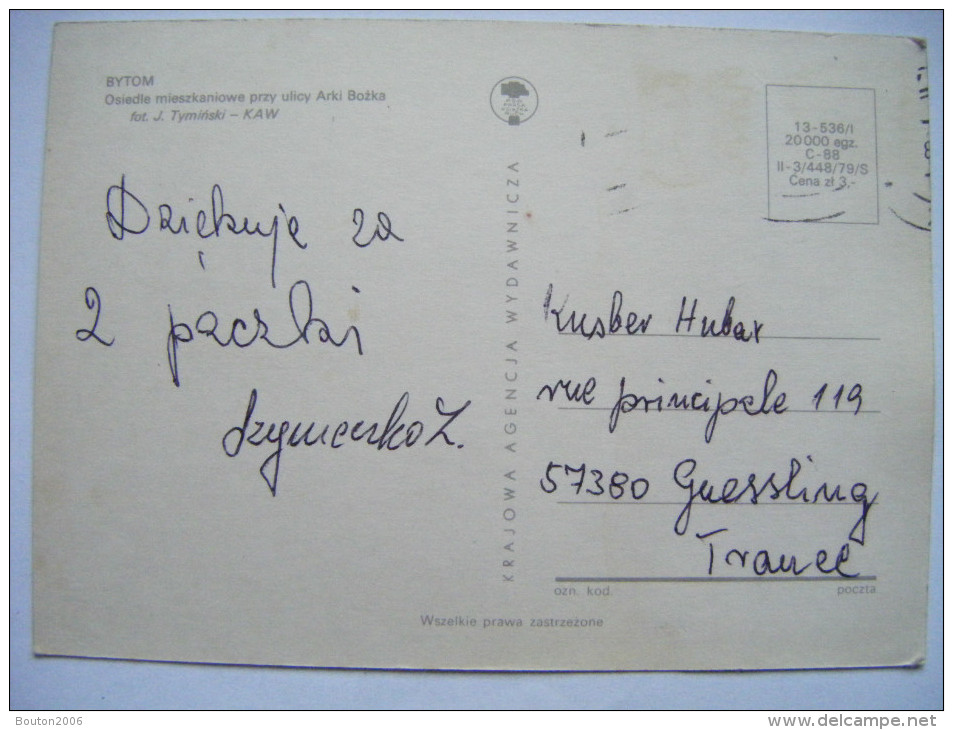 BYTOM
Osiedle mieszkaniowe przy ulicy Arki Bożka
fot. J. Tymiński – KAW
13-536/I
20 000 egz.
C-88
II-3/448/79/S
Cena zł 3,-
Dziękuję za
2 paczki
Szymeczko Z.
KRAJOWA AGENCJA WYDAWNICZA
Kusber Hubar
rue principale 119
57380 Guessling
France
ozn. kod.
poczta
Wszelkie prawa zastrzeżone
Bouton2006
www.delcampe.net